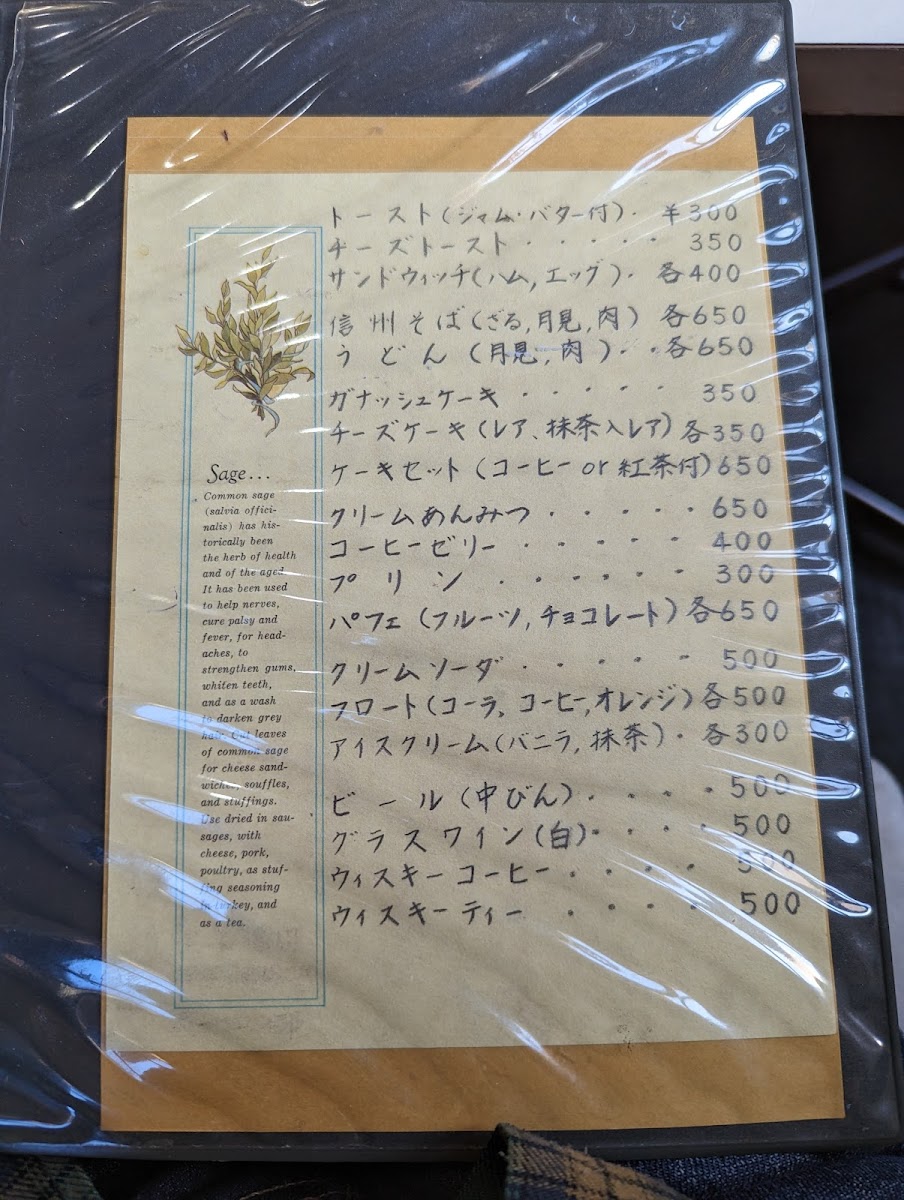 トースト(ジャム・バター付)・ ¥300
チーズトースト・・・・・ 350
サンドウィッチ(ハム,エッグ)・ 各400
信州そば(ざる,月見,肉) 各650
うどん (月見,肉)・・各650
ガナッシュケーキ・・・・・ 350
チーズケーキ(レア、抹茶入レア)各350
ケーキセット(コーヒー or 紅茶付)650
クリームあんみつ・・・・・ 650
コーヒーゼリー・・・・・ 400
プリン・・・・・・ 300
パフェ(フルーツ,チョコレート)各650
クリームソーダ・・・・・ 500
フロート(コーラ、コーヒー,オレンジ)各500
アイスクリーム(バニラ,抹茶)・各300
ビール(中びん)・・・・ 500
グラスワイン(白)・・・・ 500
ウィスキーコーヒー・・・・ 500
ウィスキーティー・・・・ 500
Sage...
Common sage
(salvia offici-
nalis) has his-
torically been
the herb of health
and of the aged.
It has been used
to help nerves,
cure palsy and
fever, for head-
aches, to
strengthen gums,
whiten teeth,
and as a wash
to darken grey
hair. Cut leaves
of common sage
for cheese sand-
wiches, souffles,
and stuffings.
Use dried in sau-
sages, with
cheese, pork,
poultry, as stuf-
fing seasoning
in turkey, and
as a tea.